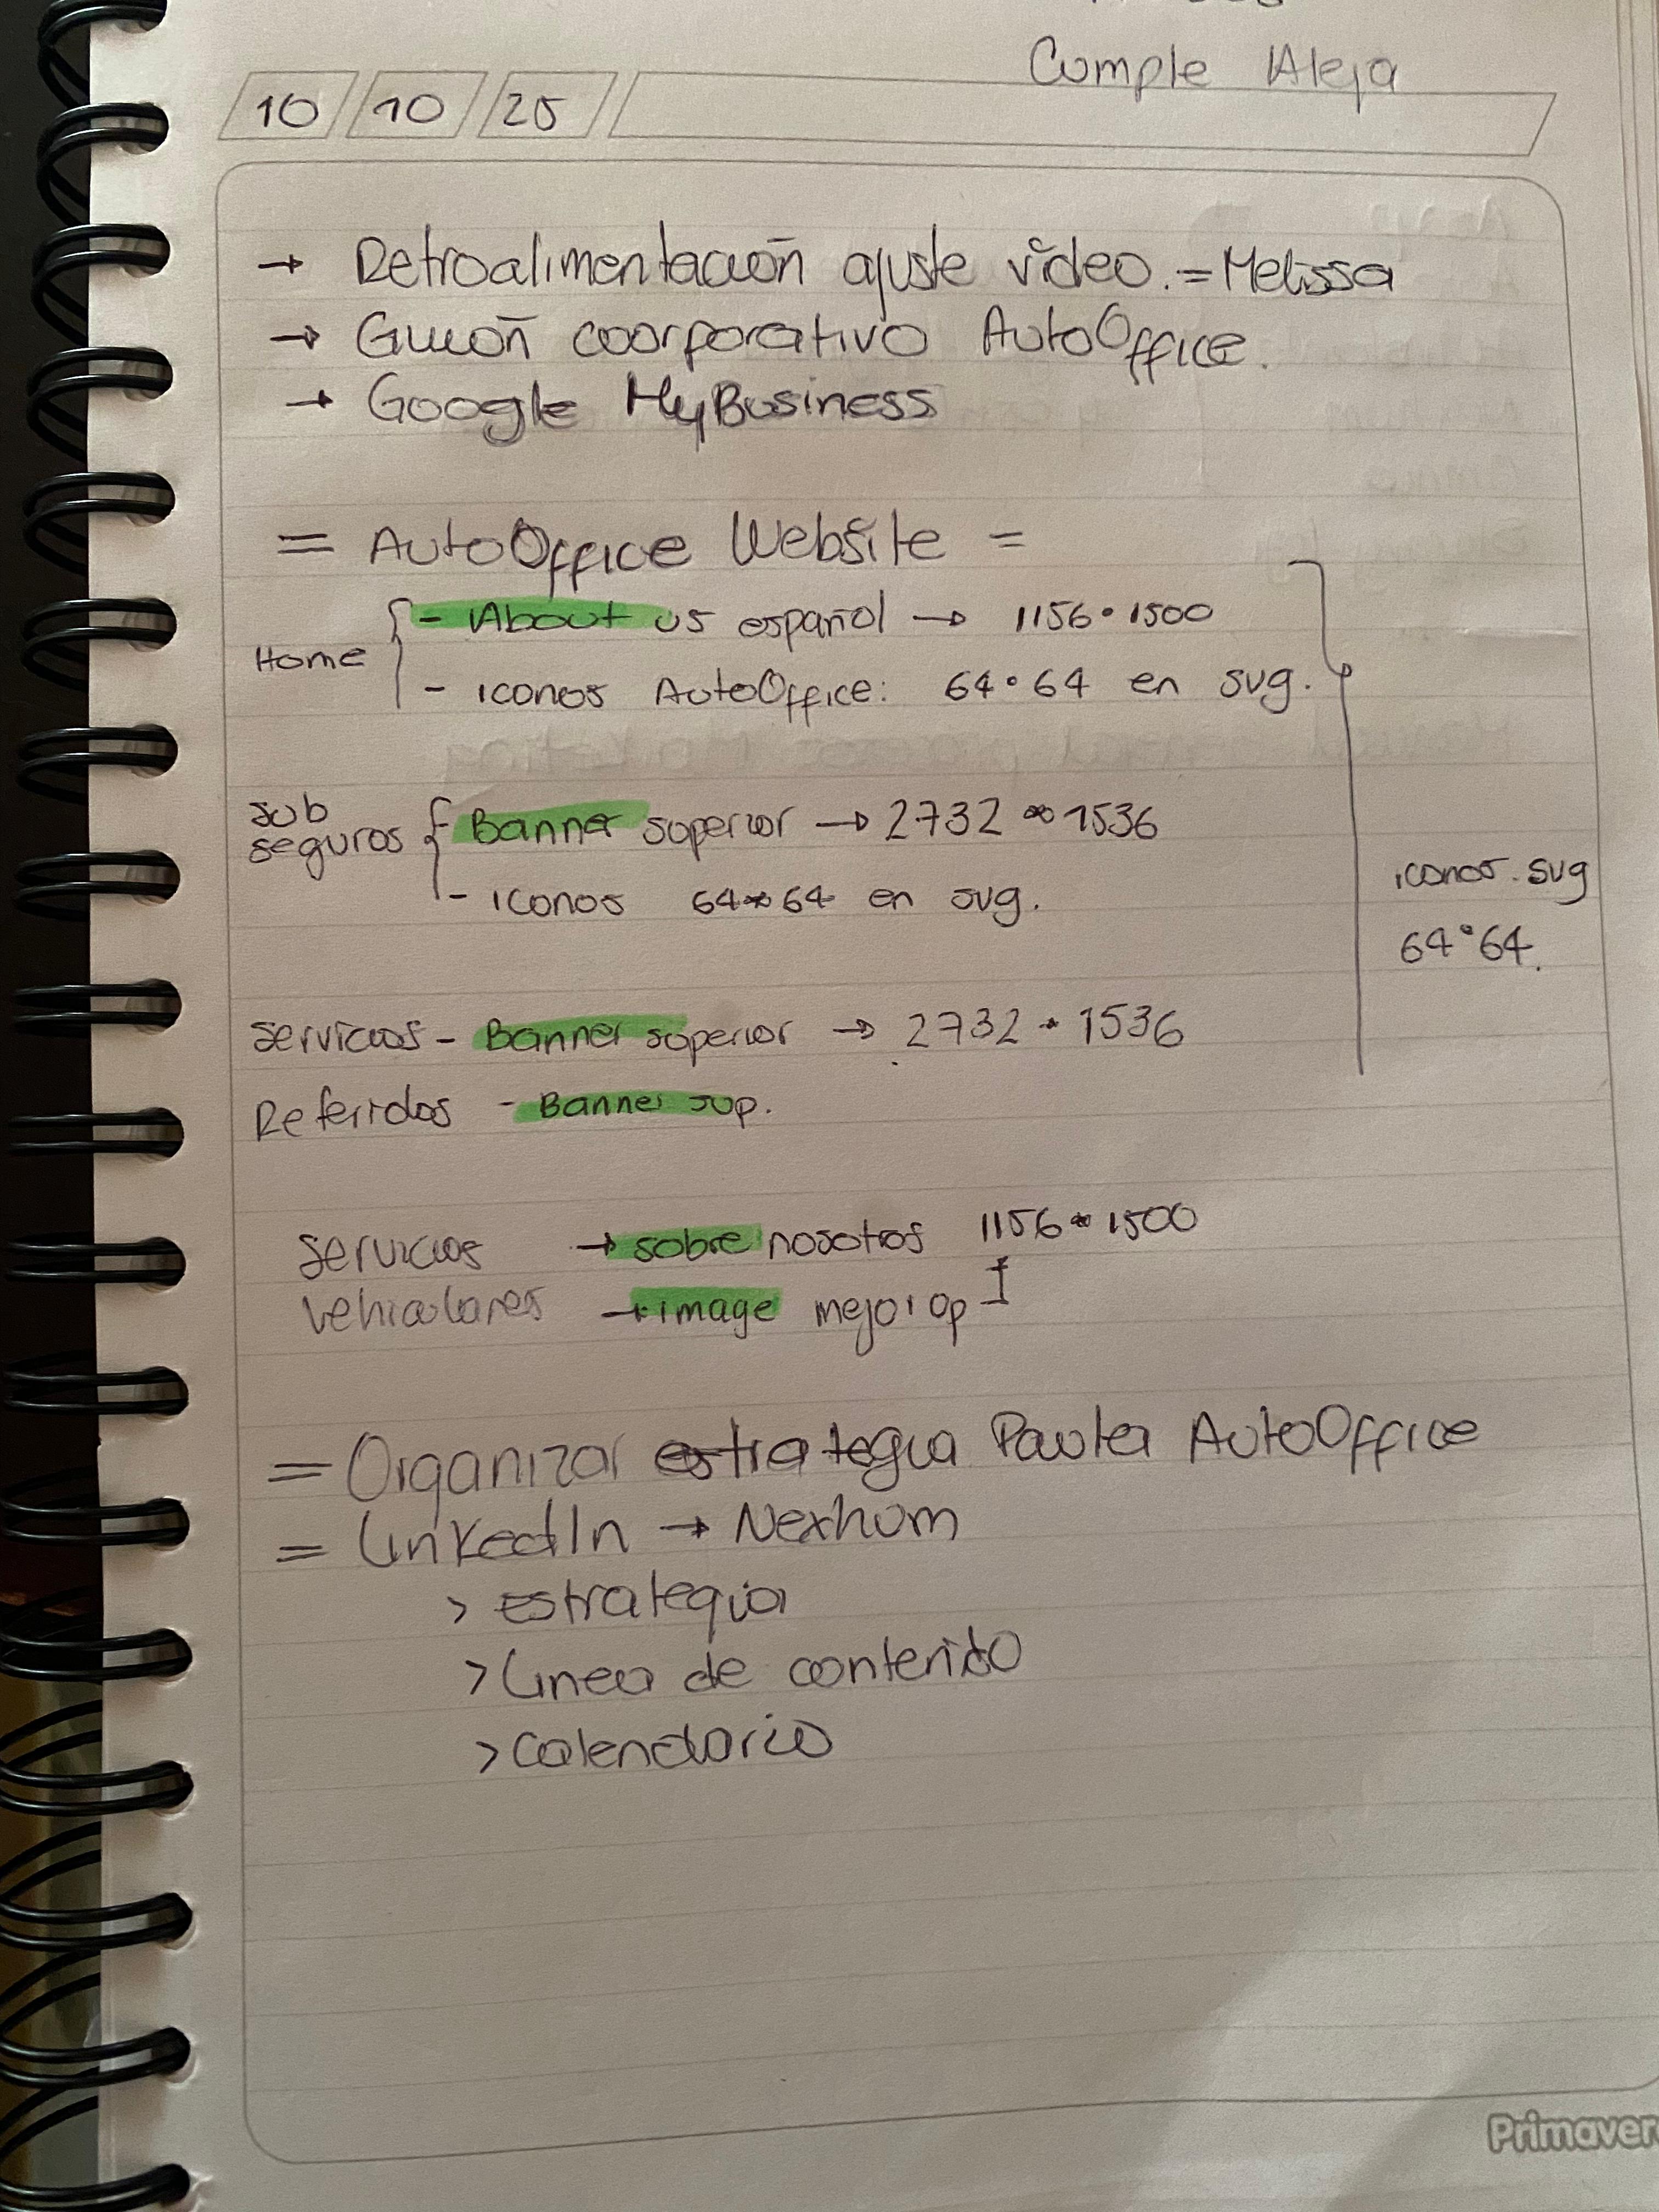 Cumple Aleja
10 10 25
→ Retroalimentación ajuste video. = Melissa
→ Guión coorporativo AutoOffice.
→ Google MyBusiness
= AutoOffice Website =
Home
- About us español → 1156 • 1500
- iconos AutoOffice: 64 • 64 en svg.
sub seguros
Banner superior → 2732 * 1536
- iconos 64 * 64 en svg.
iconos. svg
64 • 64.
Servicios - Banner superior → 2732 * 1536
Referidos - Banner sup.
Servicios → sobre nosotros 1156 * 1500
Vehiculares → image mejor op
= Organizar estrategia Pauta AutoOffice
= LinkedIn → Nexhum
> estrategia
> Linea de contenido
> Calendario
Primaver